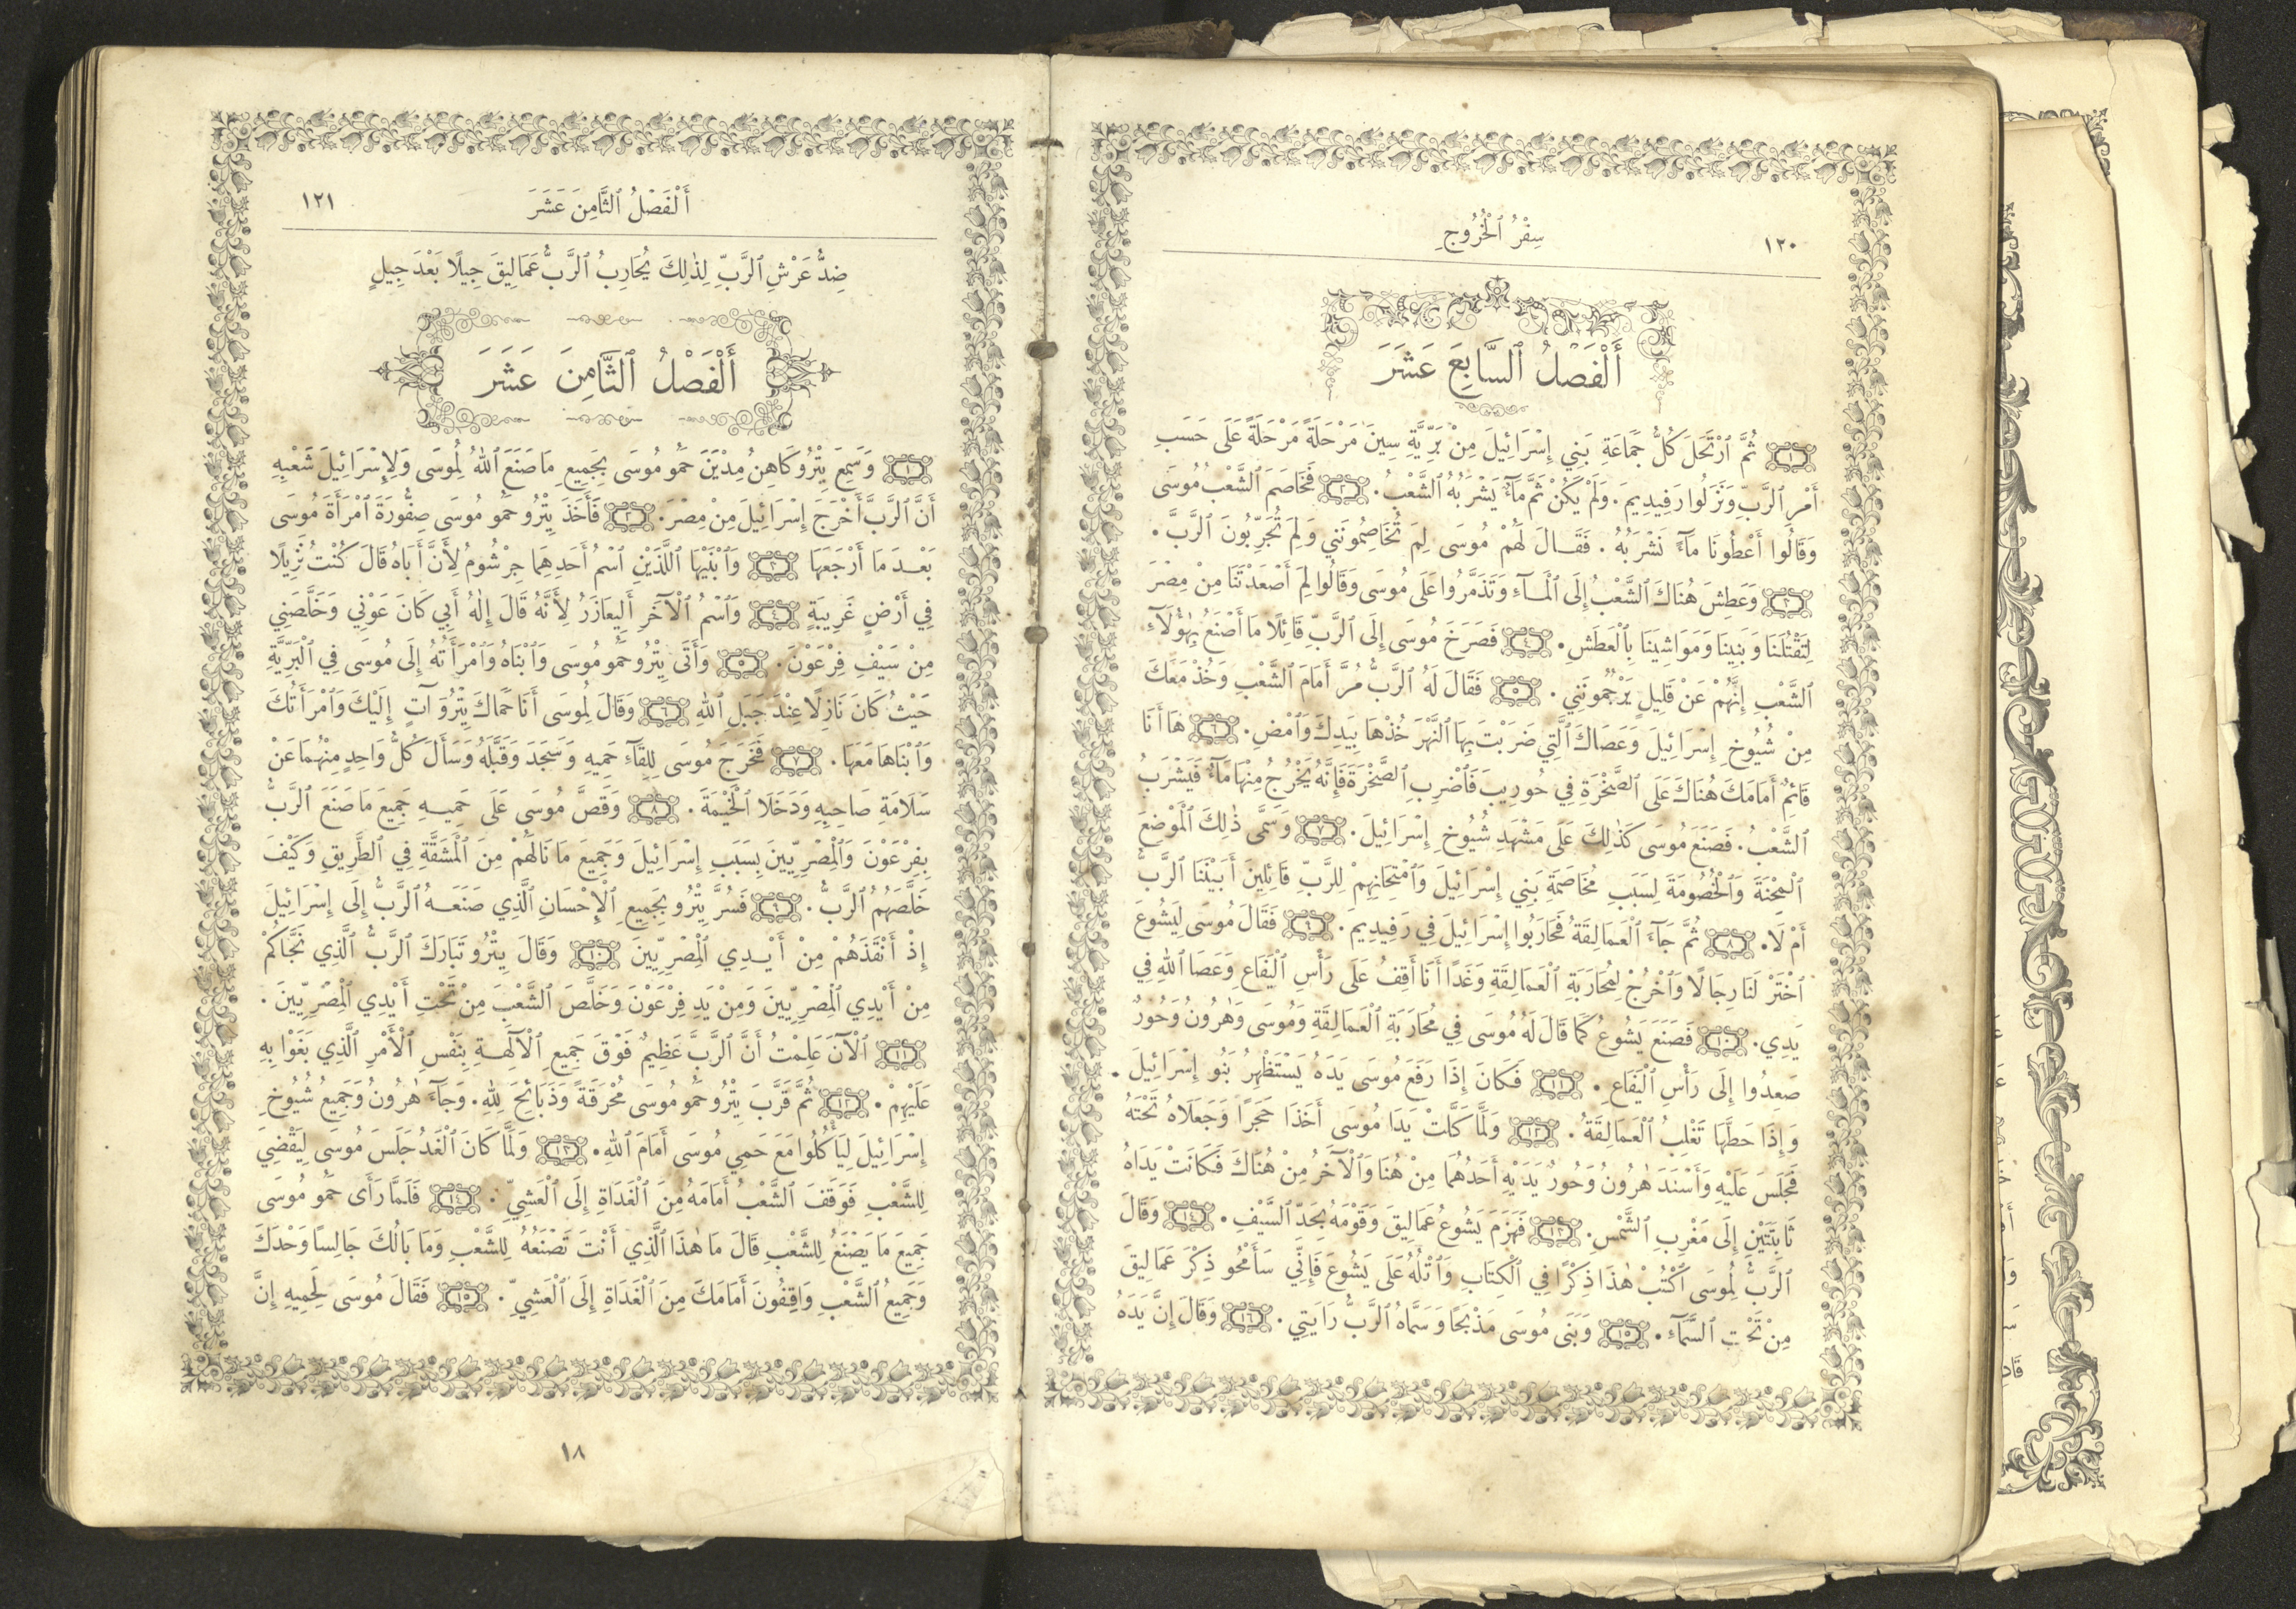 ١٢٠
سِفْرُ ٱلْخُرُوجِ
أَلْفَصْلُ ٱلسَّابِعَ عَشَرَ
١ ثُمَّ ٱرْتَحَلَ كُلُّ جَمَاعَةِ بَنِي إِسْرَائِيلَ مِنْ بَرِّيَّةِ سِينَ مَرْحَلَةً مَرْحَلَةً عَلَى حَسَبِ
أَمْرِ ٱلرَّبِّ وَنَزَلُوا رَفِيدِيمَ. وَلَمْ يَكُنْ ثَمَّ مَآءٌ يَشْرَبُهُ ٱلشَّعْبُ. ٢ فَخَاصَمَ ٱلشَّعْبُ مُوسَى
وَقَالُوا أَعْطُونَا مَآءً نَشْرَبُهُ. فَقَالَ لَهُمْ مُوسَى لِمَ تُخَاصِمُونَنِي وَلِمَ تُجَرِّبُونَ ٱلرَّبَّ.
٣ وَعَطِشَ هُنَاكَ ٱلشَّعْبُ إِلَى ٱلْمَآءِ وَتَذَمَّرُوا عَلَى مُوسَى وَقَالُوا لِمَ أَصْعَدْتَنَا مِنْ مِصْرَ
لِتَقْتُلَنَا وَبَنِينَا وَمَوَاشِينَا بِٱلْعَطَشِ. ٤ فَصَرَخَ مُوسَى إِلَى ٱلرَّبِّ قَائِلًا مَا أَصْنَعُ بِهٰؤُلَآءِ
ٱلشَّعْبِ إِنَّهُمْ عَنْ قَلِيلٍ يَرْجُمُونَنِي. ٥ فَقَالَ لَهُ ٱلرَّبُّ مُرَّ أَمَامَ ٱلشَّعْبِ وَخُذْ مَعَكَ
مِنْ شُيُوخِ إِسْرَائِيلَ وَعَصَاكَ ٱلَّتِي ضَرَبْتَ بِهَا ٱلنَّهْرَ خُذْهَا بِيَدِكَ وَٱمْضِ. ٦ هَا أَنَا
قَائِمٌ أَمَامَكَ هُنَاكَ عَلَى ٱلصَّخْرَةِ فِي حُورِيبَ فَٱضْرِبِ ٱلصَّخْرَةَ فَإِنَّهُ يَخْرُجُ مِنْهَا مَآءٌ فَيَشْرَبُ
ٱلشَّعْبُ. فَصَنَعَ مُوسَى كَذٰلِكَ عَلَى مَشْهَدِ شُيُوخِ إِسْرَائِيلَ. ٧ وَسَمَّى ذٰلِكَ ٱلْمَوْضِعَ
ٱلْمِحْنَةَ وَٱلْخُصُومَةَ لِسَبَبِ مُخَاصَمَةِ بَنِي إِسْرَائِيلَ وَٱمْتِحَانِهِمْ لِلرَّبِّ قَائِلِينَ أَبَيْنَنَا ٱلرَّبُّ
أَمْ لَا. ٨ ثُمَّ جَآءَ ٱلْعَمَالِقَةُ فَحَارَبُوا إِسْرَائِيلَ فِي رَفِيدِيمَ. ٩ فَقَالَ مُوسَى لِيَشُوعَ
ٱخْتَرْ لَنَا رِجَالًا وَٱخْرُجْ لِمُحَارَبَةِ ٱلْعَمَالِقَةِ وَغَدًا أَنَا أَقِفُ عَلَى رَأْسِ ٱلْيَفَاعِ وَعَصَا ٱللهِ فِي
يَدِي. ١٠ فَصَنَعَ يَشُوعُ كَمَا قَالَ لَهُ مُوسَى فِي مُحَارَبَةِ ٱلْعَمَالِقَةِ وَمُوسَى وَهٰرُونُ وَحُورُ
صَعِدُوا إِلَى رَأْسِ ٱلْيَفَاعِ. ١١ فَكَانَ إِذَا رَفَعَ مُوسَى يَدَهُ يَسْتَظْهِرُ بَنُو إِسْرَائِيلَ.
وَإِذَا حَطَّهَا تَغْلِبُ ٱلْعَمَالِقَةُ. ١٢ وَلَمَّا كَلَّتْ يَدَا مُوسَى أَخَذَا حَجَرًا وَجَعَلَاهُ تَحْتَهُ
فَجَلَسَ عَلَيْهِ وَأَسْنَدَ هٰرُونُ وَحُورُ يَدَيْهِ أَحَدُهُمَا مِنْ هُنَا وَٱلْآخَرُ مِنْ هُنَاكَ فَكَانَتْ يَدَاهُ
ثَابِتَتَيْنِ إِلَى مَغْرِبِ ٱلشَّمْسِ. ١٣ فَهَزَمَ يَشُوعُ عَمَالِيقَ وَقَوْمَهُ بِحَدِّ ٱلسَّيْفِ. ١٤ وَقَالَ
ٱلرَّبُّ لِمُوسَى ٱكْتُبْ هٰذَا ذِكْرًا فِي ٱلْكِتَابِ وَٱتْلُهُ عَلَى يَشُوعَ فَإِنِّي سَأَمْحُو ذِكْرَ عَمَالِيقَ
مِنْ تَحْتِ ٱلسَّمَآءِ. ١٥ وَبَنَى مُوسَى مَذْبَحًا وَسَمَّاهُ ٱلرَّبُّ رَايَتِي. ١٦ وَقَالَ إِنَّ يَدَهُ
أَلْفَصْلُ ٱلثَّامِنَ عَشَرَ
١٢١
ضِدُّ عَرْشِ ٱلرَّبِّ لِذٰلِكَ يُحَارِبُ ٱلرَّبُّ عَمَالِيقَ جِيلًا بَعْدَ جِيلٍ
أَلْفَصْلُ ٱلثَّامِنَ عَشَرَ
١ وَسَمِعَ يِتْرُو كَاهِنُ مِدْيَنَ حَمُو مُوسَى بِجَمِيعِ مَا صَنَعَ ٱللهُ لِمُوسَى وَلِإِسْرَائِيلَ شَعْبِهِ
أَنَّ ٱلرَّبَّ أَخْرَجَ إِسْرَائِيلَ مِنْ مِصْرَ. ٢ فَأَخَذَ يِتْرُو حَمُو مُوسَى صِفُّورَةَ ٱمْرَأَةَ مُوسَى
بَعْدَ مَا أَرْجَعَهَا ٣ وَٱبْنَيْهَا ٱللَّذَيْنِ ٱسْمُ أَحَدِهِمَا جِرْشُومُ لِأَنَّ أَبَاهُ قَالَ كُنْتُ نَزِيلًا
فِي أَرْضٍ غَرِيبَةٍ ٤ وَٱسْمُ ٱلْآخَرِ أَلِيعَازَرُ لِأَنَّهُ قَالَ إِلٰهُ أَبِي كَانَ عَوْنِي وَخَلَّصَنِي
مِنْ سَيْفِ فِرْعَوْنَ. ٥ وَأَتَى يِتْرُو حَمُو مُوسَى وَٱبْنَاهُ وَٱمْرَأَتُهُ إِلَى مُوسَى فِي ٱلْبَرِّيَّةِ
حَيْثُ كَانَ نَازِلًا عِنْدَ جَبَلِ ٱللهِ ٦ وَقَالَ لِمُوسَى أَنَا حَمَاكَ يِتْرُو آتٍ إِلَيْكَ وَٱمْرَأَتُكَ
وَٱبْنَاهَا مَعَهَا. ٧ فَخَرَجَ مُوسَى لِلِقَآءِ حَمِيهِ وَسَجَدَ وَقَبَّلَهُ وَسَأَلَ كُلُّ وَاحِدٍ مِنْهُمَا عَنْ
سَلَامَةِ صَاحِبِهِ وَدَخَلَا ٱلْخَيْمَةَ. ٨ وَقَصَّ مُوسَى عَلَى حَمِيهِ جَمِيعَ مَا صَنَعَ ٱلرَّبُّ
بِفِرْعَوْنَ وَٱلْمِصْرِيِّينَ بِسَبَبِ إِسْرَائِيلَ وَجَمِيعَ مَا نَالَهُمْ مِنَ ٱلْمَشَقَّةِ فِي ٱلطَّرِيقِ وَكَيْفَ
خَلَّصَهُمُ ٱلرَّبُّ. ٩ فَسُرَّ يِتْرُو بِجَمِيعِ ٱلْإِحْسَانِ ٱلَّذِي صَنَعَهُ ٱلرَّبُّ إِلَى إِسْرَائِيلَ
إِذْ أَنْقَذَهُمْ مِنْ أَيْدِي ٱلْمِصْرِيِّينَ ١٠ وَقَالَ يِتْرُو تَبَارَكَ ٱلرَّبُّ ٱلَّذِي نَجَّاكُمْ
مِنْ أَيْدِي ٱلْمِصْرِيِّينَ وَمِنْ يَدِ فِرْعَوْنَ وَخَلَّصَ ٱلشَّعْبَ مِنْ تَحْتِ أَيْدِي ٱلْمِصْرِيِّينَ.
١١ ٱلْآنَ عَلِمْتُ أَنَّ ٱلرَّبَّ عَظِيمٌ فَوْقَ جَمِيعِ ٱلْآلِهَةِ بِنَفْسِ ٱلْأَمْرِ ٱلَّذِي بَغَوْا بِهِ
عَلَيْهِمْ. ١٢ ثُمَّ قَرَّبَ يِتْرُو حَمُو مُوسَى مُحْرَقَةً وَذَبَائِحَ لِلهِ. وَجَآءَ هٰرُونُ وَجَمِيعُ شُيُوخِ
إِسْرَائِيلَ لِيَأْكُلُوا مَعَ حَمِي مُوسَى أَمَامَ ٱللهِ. ١٣ وَلَمَّا كَانَ ٱلْغَدُ جَلَسَ مُوسَى لِيَقْضِيَ
لِلشَّعْبِ فَوَقَفَ ٱلشَّعْبُ أَمَامَهُ مِنَ ٱلْغَدَاةِ إِلَى ٱلْعَشِيِّ. ١٤ فَلَمَّا رَأَى حَمُو مُوسَى
جَمِيعَ مَا يَصْنَعُ لِلشَّعْبِ قَالَ مَا هٰذَا ٱلَّذِي أَنْتَ تَصْنَعُهُ لِلشَّعْبِ وَمَا بَالُكَ جَالِسًا وَحْدَكَ
وَجَمِيعُ ٱلشَّعْبِ وَاقِفُونَ أَمَامَكَ مِنَ ٱلْغَدَاةِ إِلَى ٱلْعَشِيِّ. ١٥ فَقَالَ مُوسَى لِحَمِيهِ إِنَّ
١٨